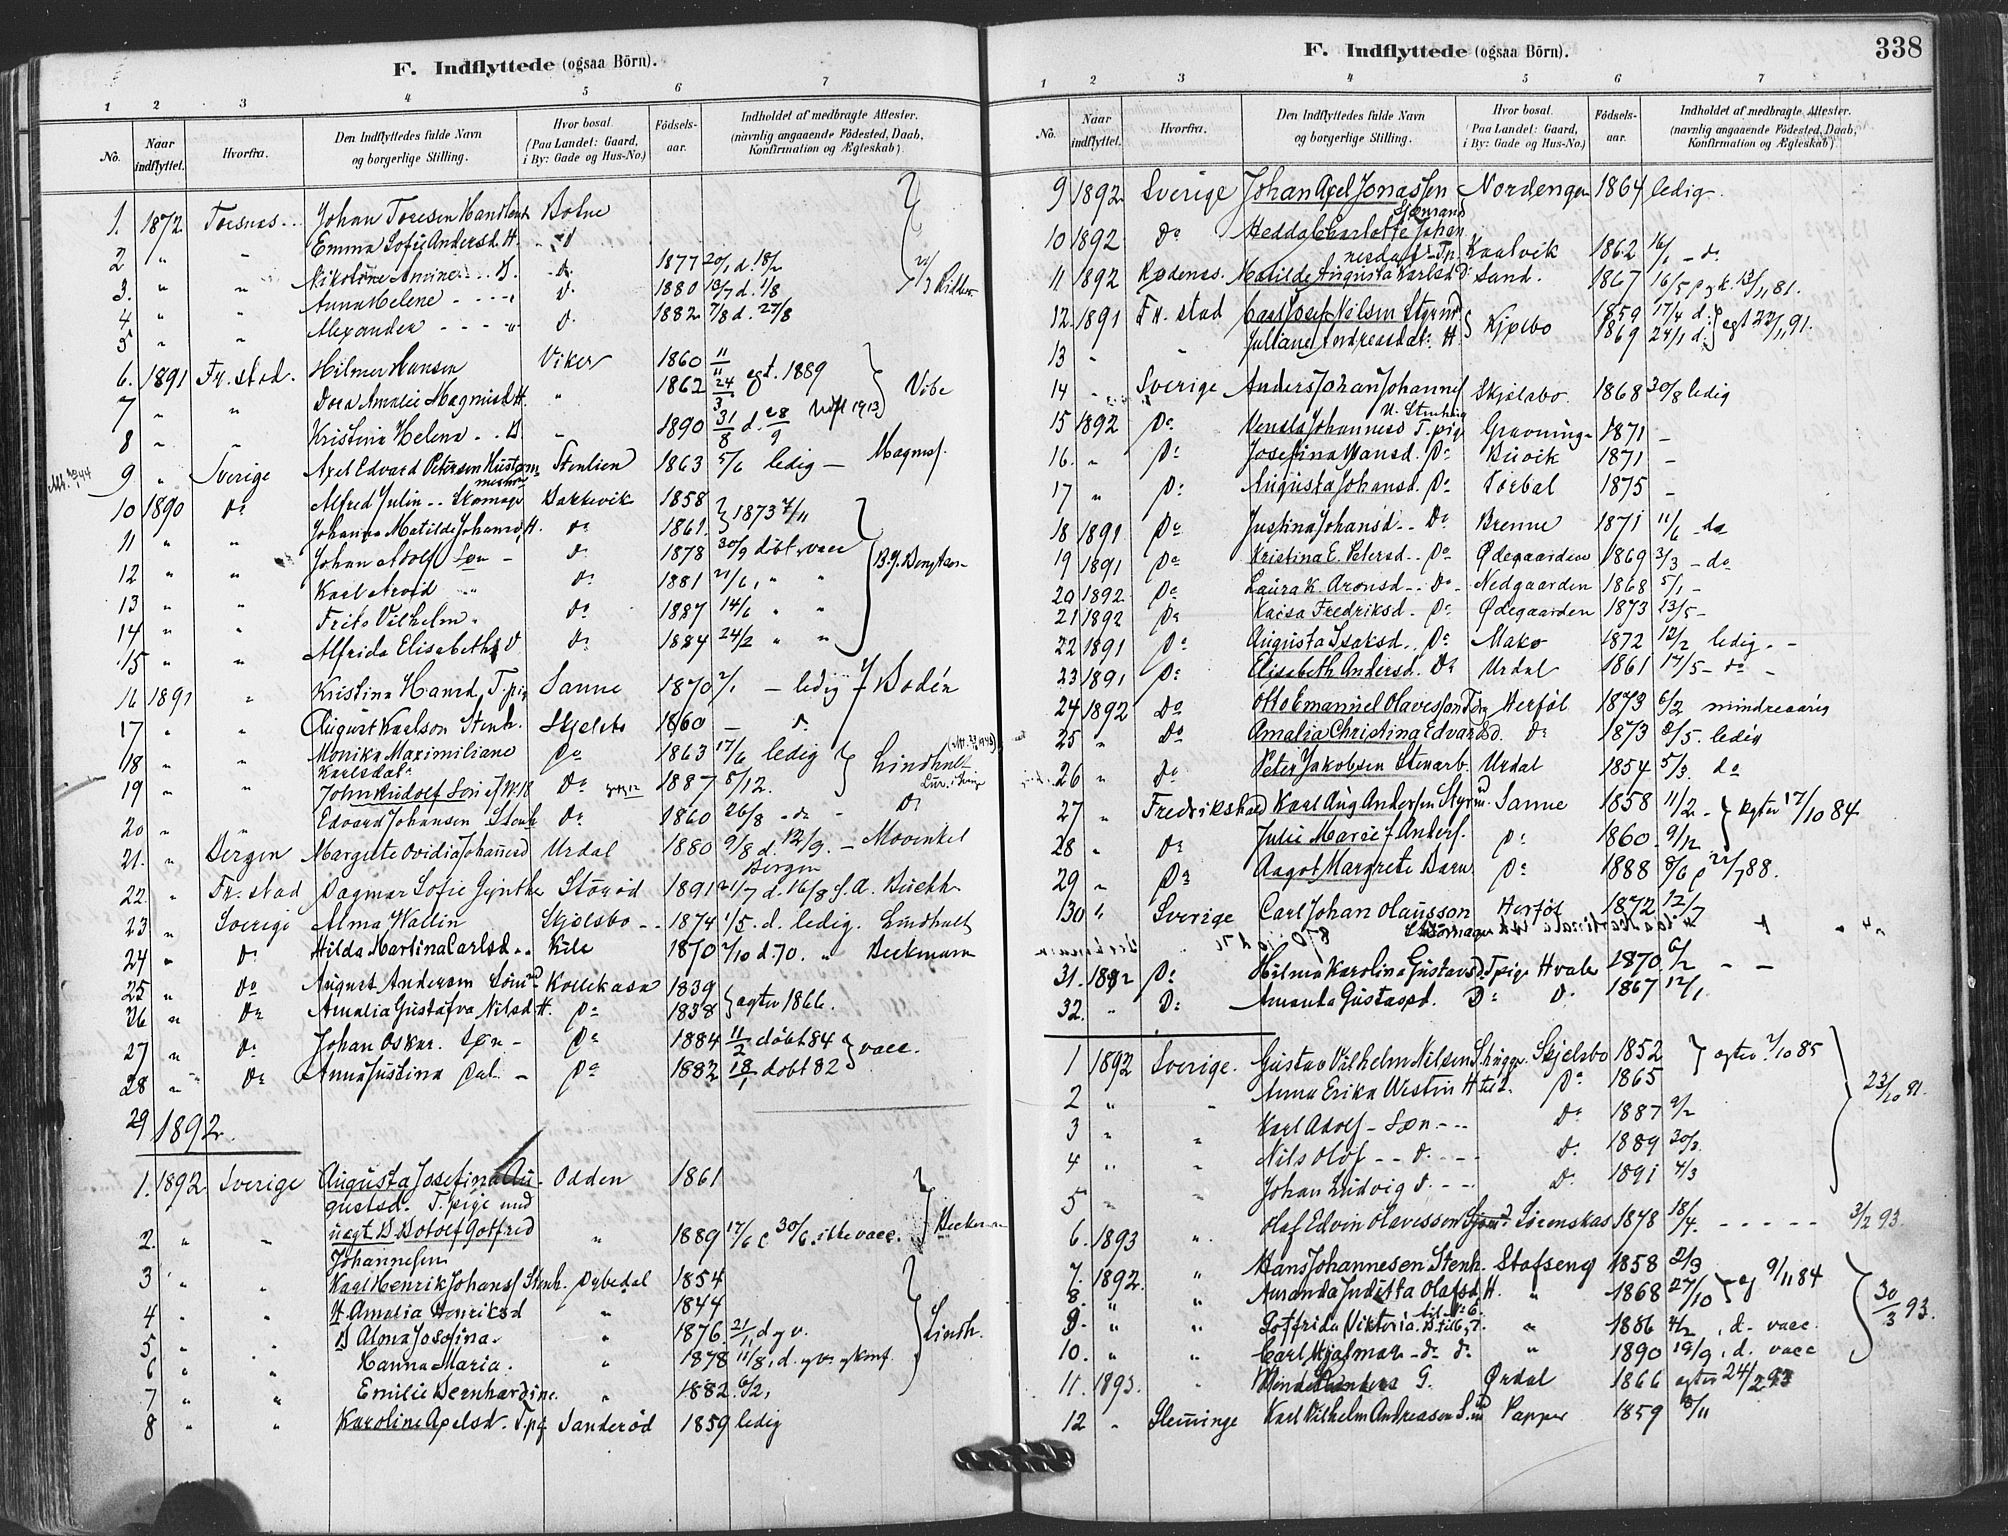 F. Indflyttede (ogsaa Börn).
1 2 3 4 5 6 7
No. Naar indflyttet. Hvorfra. Den Indflyttedes fulde Navn og borgerlige Stilling. Hvor bosat. (Paa Landet: Gaard, i By: Gade og Hus-No.) Födsels-aar. Indholdet af medbragte Attester. (navnlig angaaende Födested, Daab, Konfirmation og Ægteskab).
1. 1872 Torsnæs Johan Toresen Bølne
2 " " Emma Sofie Andersd. H. d
3. " " Nikoline Amine D. d. 1877 20/1 d. 18/2
4 " " Anna Helene d. 1880 13/7 d. 1/8
5 " " Alexander d. 1882 7/8 d. 27/8
6. 1891 Fr.stad. Hilmer Hansen Viker 1860 11/11 egt. 1889
7 " " Dora Amalie Magnusd H. " 1862 24/3 Vibe
8 " " Kristine Helene D. 1890 31/8 d. 28/9
9 " Sverige Axel Edvard Petersen Stenlien 1863 5/6 ledig – Magnus.
10 1890 do Alfred Julin Skomager Bakkevik 1858
11 " " Johanna Matilde H. do 1861 1873 7/11
12 " " Johan Adolf Søn d. 1878 30/9 döbt, vacc
13 " " Karl Arvid do 1881 21/6, " "
14 " " Frits Vilhelm do 1887 14/6 " "
15 " " Alfrida Elisabeth D do 1884 24/2 " "
16 1891 " Kristina Hansd. T.pig Sanne 1870 2/1 – ledig Bodén
17 " " August Karlson Stenh. Skjelsbo 1860 – d.
18 " " Monika Maximiliane Karlsdat. Do 1863 17/6 ledig Lindholt
19 " " John Rudolf Søn af No 18 Do 1887 8/12.
20 " " Edvard Johansen Stenh Do 1860 26/8 – do – do
21. " Bergen Margrete Ovidia Johannesd Urdal 1880 9/8 d. 12/9. – Movinkel
Bergen
22 " Fr.stad Dagmar Sofie Gjnthe Störöd 1891 21/7 d. 16/8 S.A. Buchh
23 " Sverige Alma Wallin Skjelsbo 1874 1/5. d. ledig. Lindholt
24 " do Hilda Martina Carlsd. Kile 1870 2/10 d. 70. " Beckmann
25 " do August Andersen Kollekasa 1839
26 " Do Amalia Gustafva Nilsd H. Do 1838 agter 1866.
27 " do Johan Oskar. Søn Do 1884 11/2 döbt 84
28 " Do Anna Justina Dat. – Do 1882 18/1 dobt 82 vacc.
29 1892.
1. 1892 Sverige Augusta Josefina Au- Odden 1861
gustsd. T. pige med
2. " " uegt B. Botolf Gotfred " 1889 17/6 30/6. ikke vacc. Beckman
Johannesen
3 " " Karl Henrik Johans Stenh. Dybedal 1854
4 " " H Amalia Henriksd " 1844
5 " " D Alma Josefina. " 1876 21/1, d. g v. Lindh.
6 " " Hanna Maria. " 1878 11/8, d. g v. g konf.
7 " " Emilie Bernhardine. " 1882. 6/2,
8 " " Karoline Axelsd. T.pig Sanderöd 1859 ledig
338
F. Indflyttede (ogsaa Börn).
1 2 3 4 5 6 7
No. Naar indflyttet. Hvorfra. Den Indflyttedes fulde Navn og borgerlige Stilling. Hvor bosat. (Paa Landet: Gaard, i By: Gade og Hus-No.) Födsels-aar. Indholdet af medbragte Attester. (navnlig angaaende Födested, Daab, Konfirmation og Ægteskab)
9 1892 Sverige Johan Axel Jonassen Nordengen 1864 ledig
Sjømand
10 1892 Do Hedda Charlotte Johan-
nesdatt. T.p. Kaalvik 1862 16/1 – do
11 1892 Rødenes. Matilde Augusta Karlsd Do Sand. 1867 16/5 k. 13/11 81.
12. 1891 Fr. stad Carl Josef Nilsen Styrmd Kjølbo 1859 17/4 d.
13 " " Juliane Andreasdat. H 1869 24/1 d. egt 22/11 91.
14 " Sverige Anders Johan Johannes Skjelsbo. 1868 30/8 ledig
U. Stenhug
15 1892 Do Johannesd T. pig Gravninge 1871 –
16. " Do Josefina Hansd. Do Buvik 1871 –
17 " Do Augusta Johansd. Do Torbal 1875 –
18 1891 Do Justina Johansd. Do Brenne 1871 11/6 – do
19 1891 Do Kristina E. Petersd. Do Ødegaarden 1869 3/3 – do
20 1892 Do Laura K. Aronsd. Do Nedgaarden 1868 5/1 –
21 1892 Do Kaisa Fredriksd. Do Ødegaarden 1873 23/5 –
22 1891 Do Augusta Isaksd. Do Makø 1872 12/2 ledig. –
23 1891 Do Elisabeth Andersd. Do Urdal 1861 17/5 – do –
24 1892 Do Otto Emanuel Olavesson Herföl 1873 6/2 mindreaarig
25 " Do Amalia Christina Edvardsd. Do 1873 8/5. ledig
26 " Do Peter Jakobsen Stenarb. Urdal 1854 5/3. do
27 " Fredrikstad Karl Aug Andersen Styrm. Sanne 1858 11/2 – Egter 17/10 84
28 " Do Julie Marie f. Anders. Do 1860. 9/12
29 " Do Aagot Margrete Barn Do 1888 8/6 22/7 88.
30 " Sverige Carl Johan Olausson Herföl 1872 12/7
Skomager
31. 1892 Do Hilma Karolina Gustavsd. T.pige Hvaler 1870. 6/2 – –
32. " Do Amanda Gustavsd. Do Do 1867 12/1.
1 1892 Sverige. Gustav Vilhelm Nilsen Skjelsbo 1852 agter 7/10 85
2 " " Anna Erika Westin H til 1. Do 1865
3 " " Karl Adolf – Søn Do 1887 9/2 23/10 91.
4 " " Nils Olof – – d. Do 1889 30/3
5 " " Johan Ludvig d. Do 1891 4/3
6. 1893 " Olaf Edvin Olavesson Sørenskas 1878 18/4. – – – – 3/2 93.
7. 1892. " Hans Johannesen Stenh. Stafseng 1858 2/3
8. " " Amanda Juditta Olafsd. H. " 1868 27/10 9/11 84
9. " " Gotfrida Viktoria. " 1886 4/2, d. vacc. 30/3 93.
10. " " Carl Hjalmar – do do " 1890 19/9, d. vacc
11. 1893. " G. Ørdal 1866 egter 24/2 93
12 " Glemminge Karl Vilhelm Andreasen Papper 1859 8/11